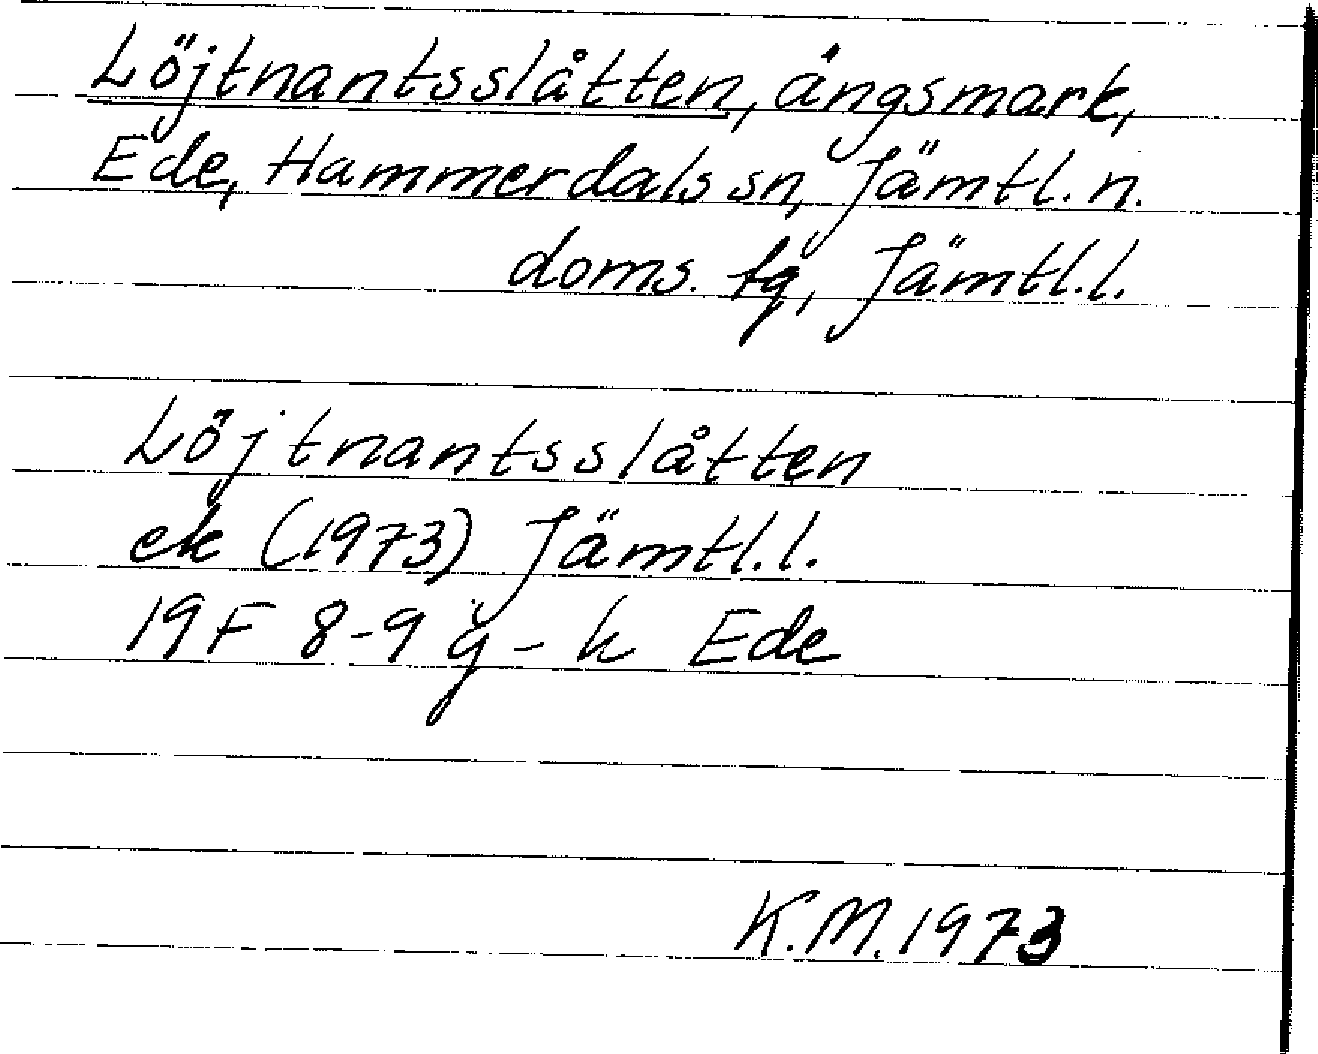 Löjtnantsslåtten, ängsmark,
Ede, Hammerdals sn, Jämtl. n.
doms. fg, Jämtl.l.
Löjtnantsslåtten
ek (1973) Jämtl.l.
19F 8-9 g-h Ede
K.M. 1973